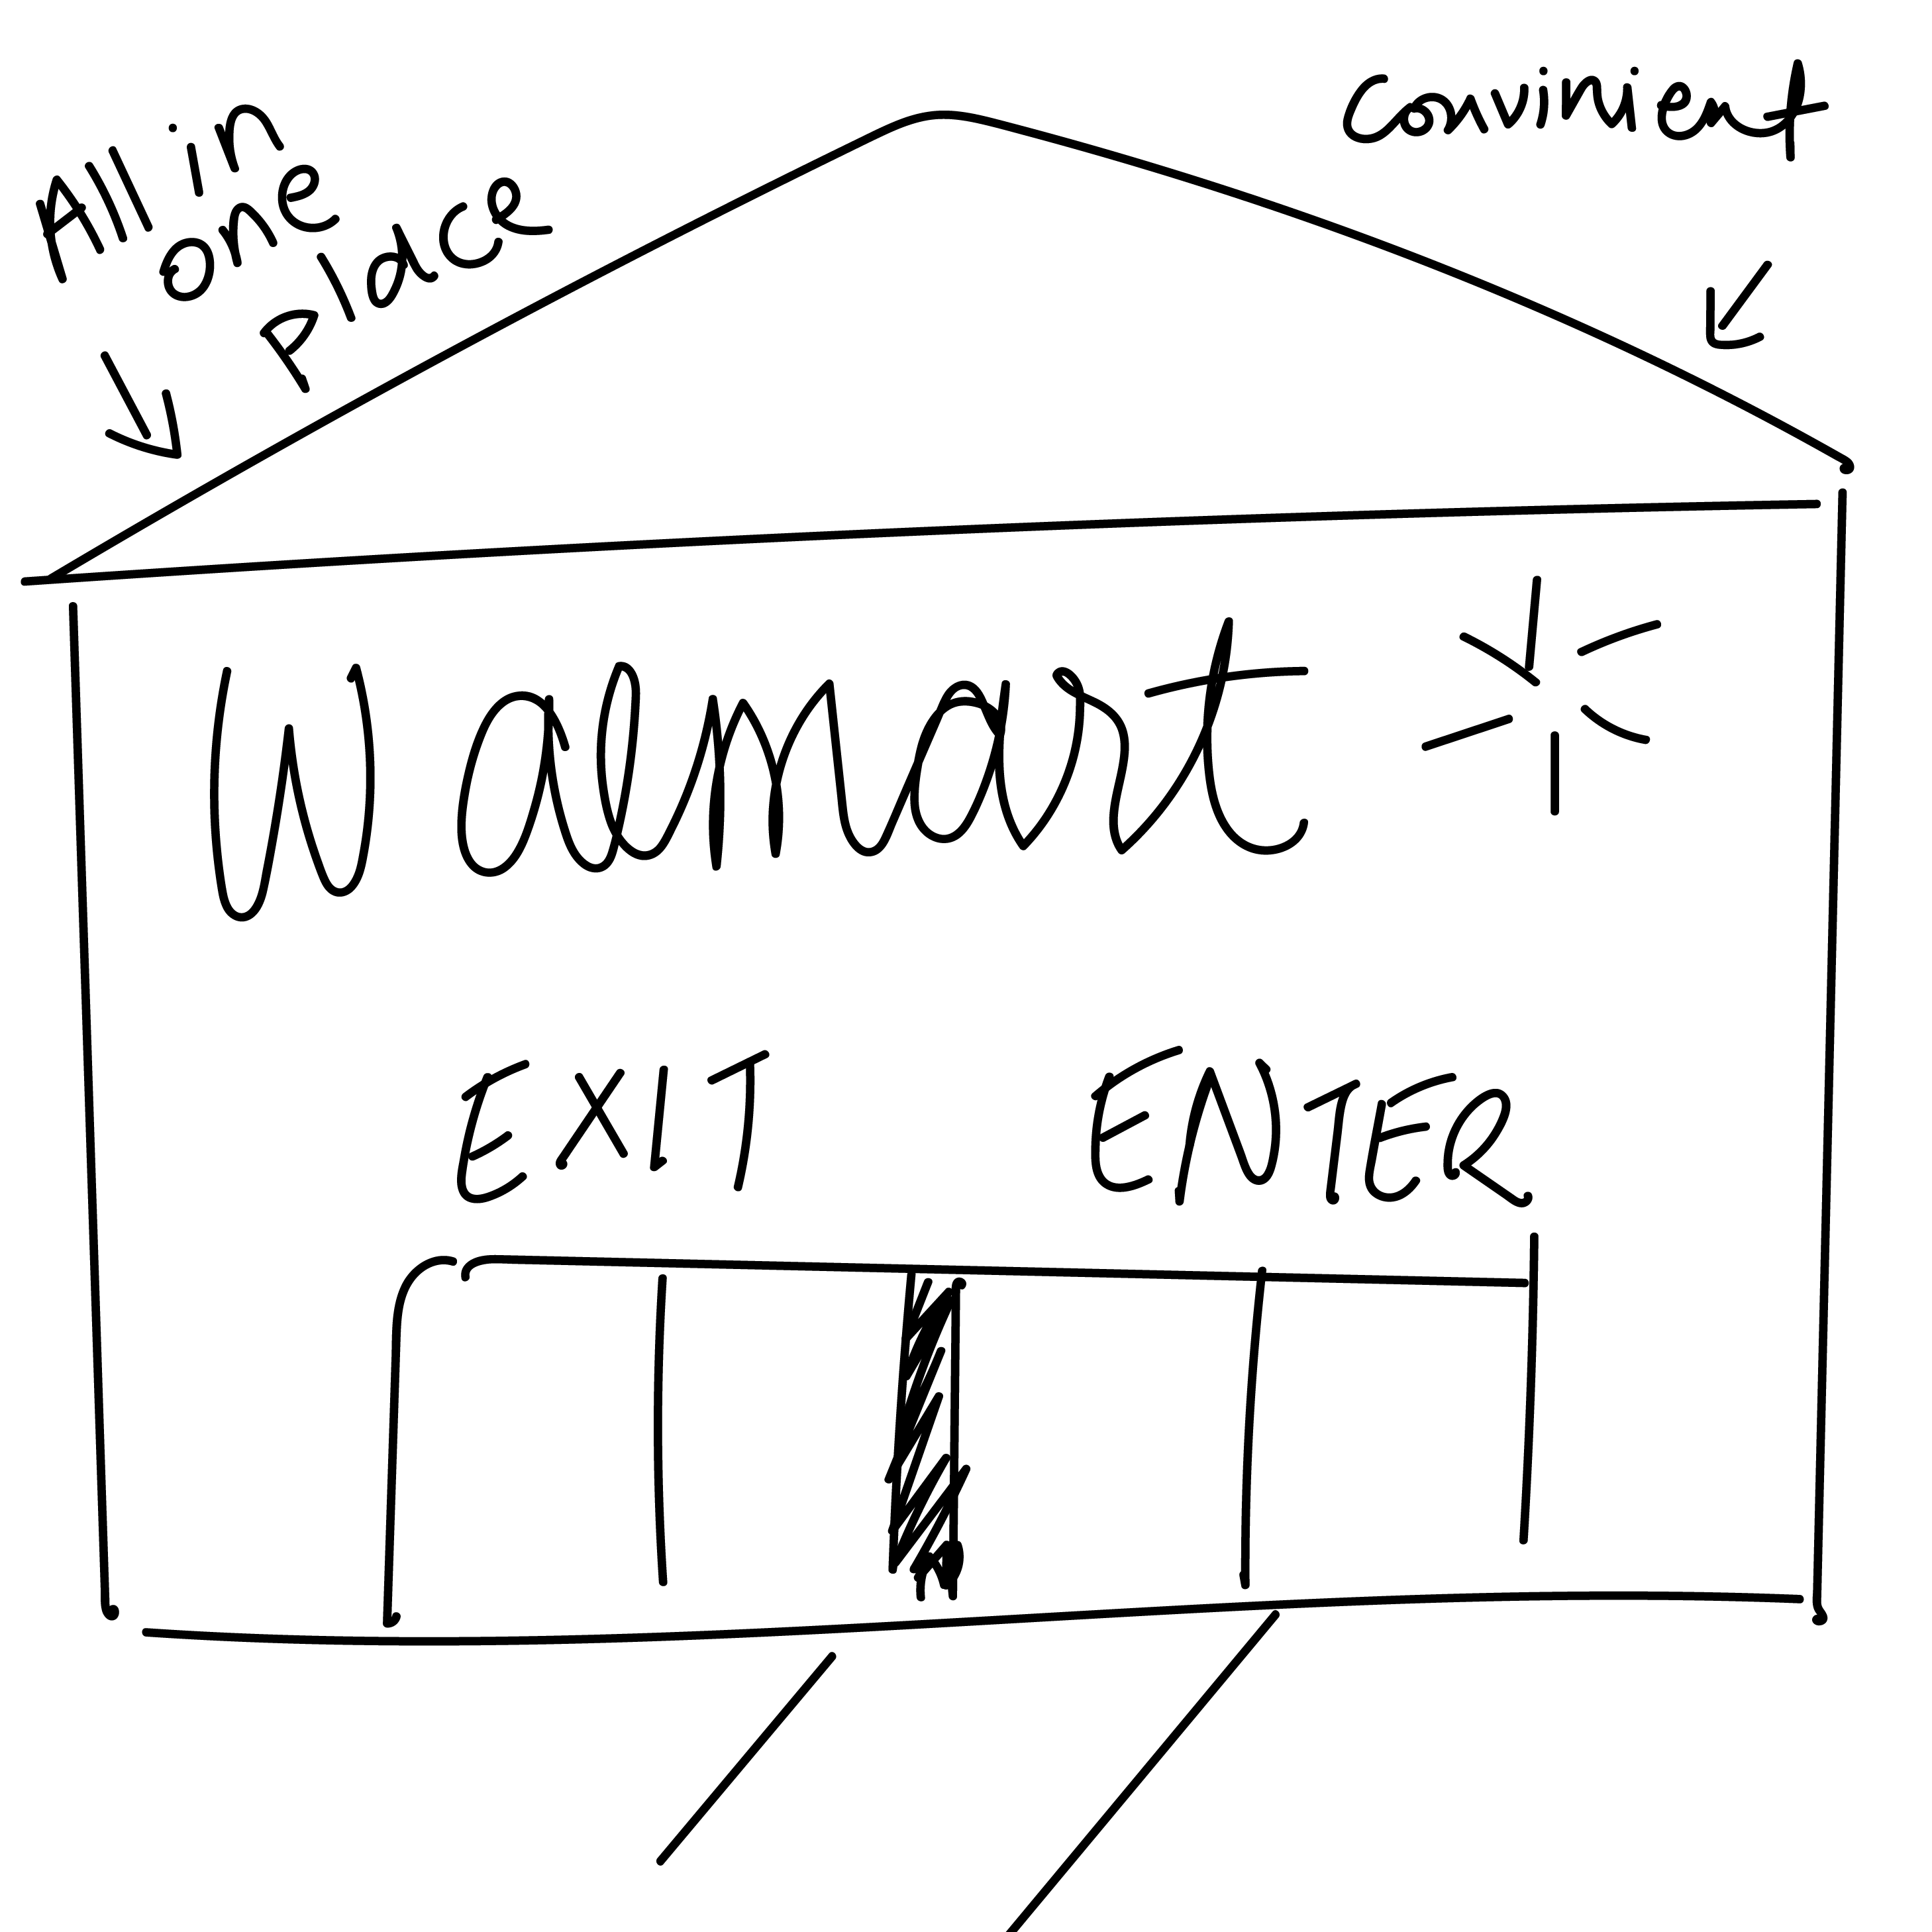 All in
one
place
convinient
Walmart
EXIT
ENTER